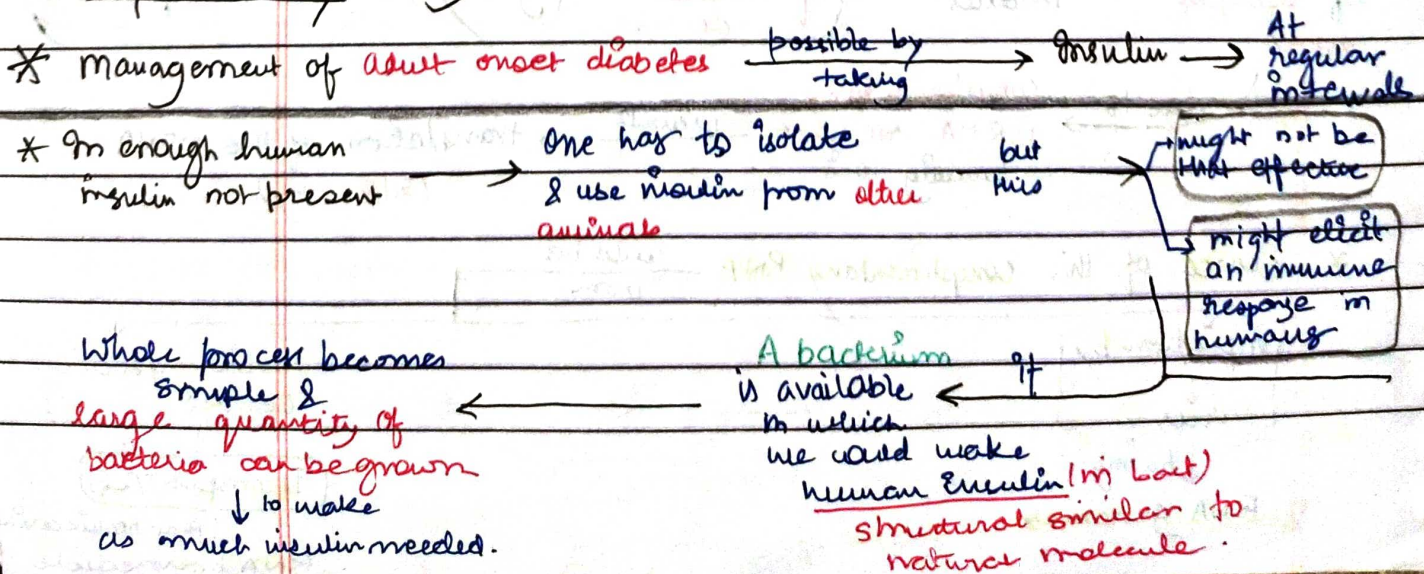 * Management of adult onset diabetes possible by taking → Insulin → At regular intervals
* In enough human
insulin not present
→ One has to isolate
& use insulin from other
animals
but
this
might not be
that effective
might elicit
an immune
response in
humans
If
A bacterium
is available
in which
we could make
human Insulin (in bact)
structural similar to
natural molecule.
Whole process becomes
simple &
large quantity of
bacteria can be grown
↓ to make
as much insulin needed.